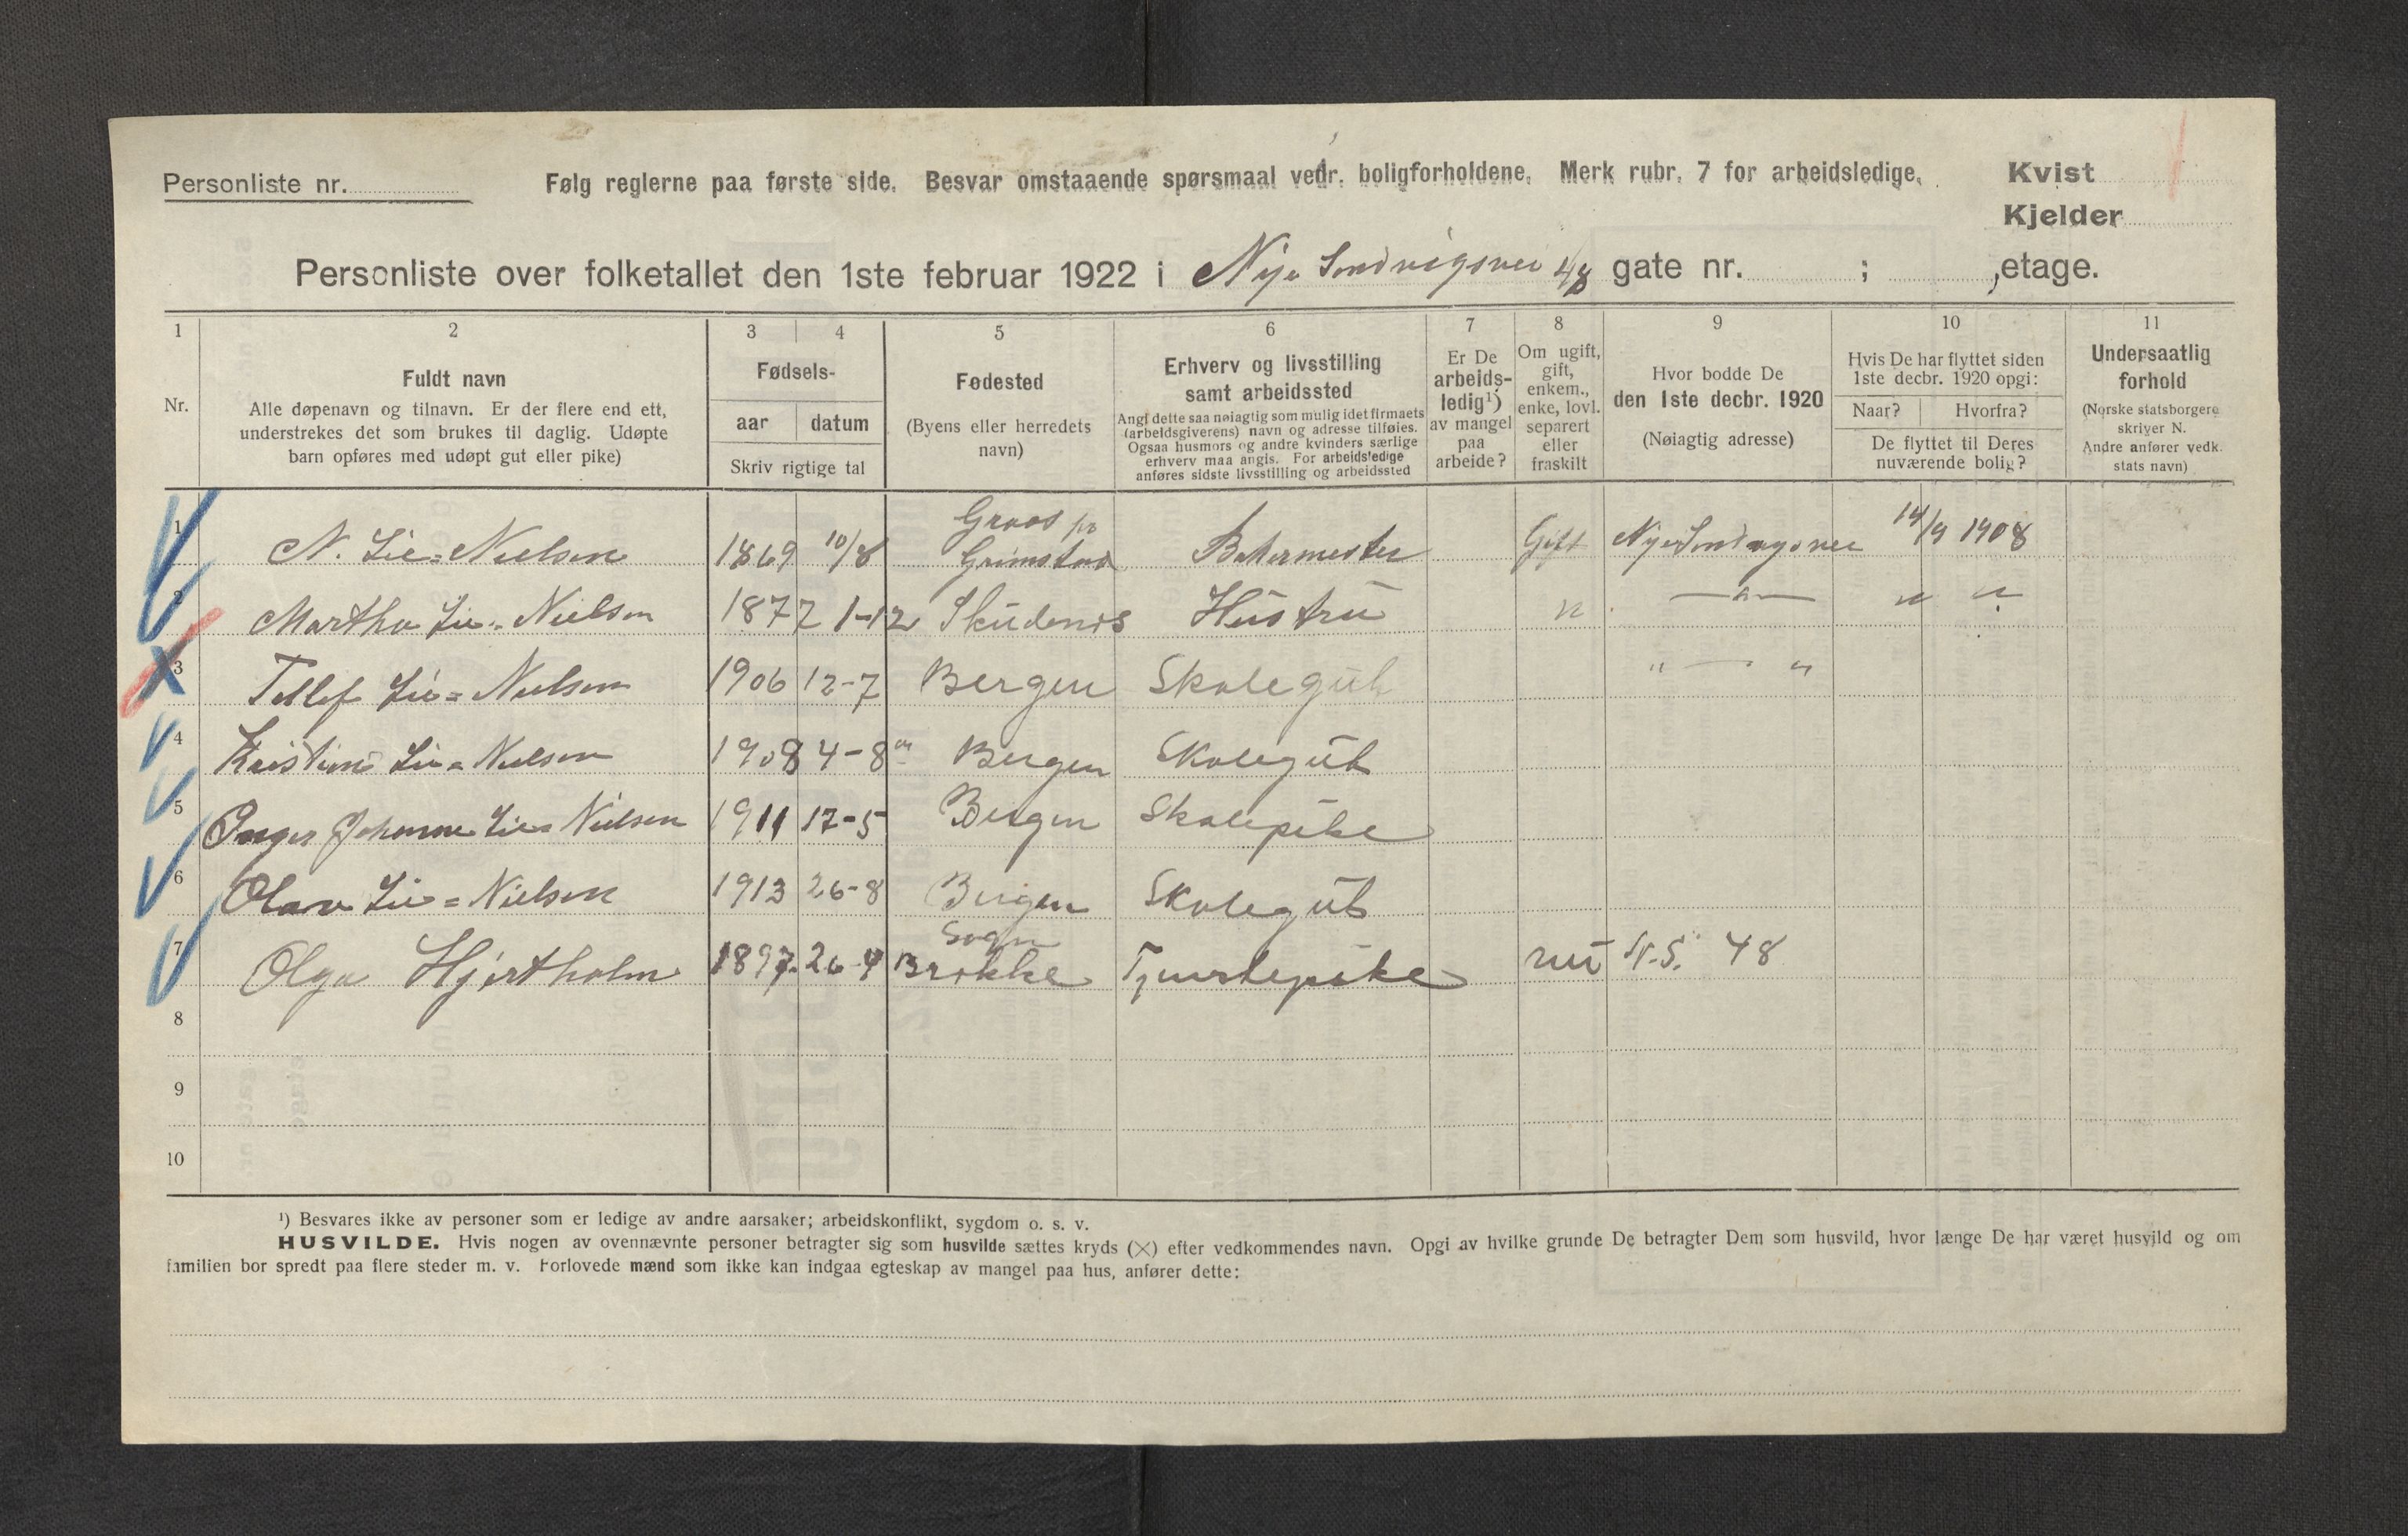 Personliste nr.
Følg reglerne paa første side. Besvar omstaaende spørsmaal vedr. boligforholdene. Merk rubr. 7 for arbeidsledige.
Kvist
Kjelder
Personliste over folketallet den 1ste februar 1922 i Nye Sandvigsvei 48 gate nr. ; , etage.
1 2 3 4 5 6 7 8 9 10 11
Nr.
Fuldt navn
Alle døpenavn og tilnavn. Er der flere end ett,
understrekes det som brukes til daglig. Udøpte
barn opføres med udøpt gut eller pike)
Fødsels-
aar datum
Skriv rigtige tal
Fødested
(Byens eller herredets
navn)
Erhverv og livsstilling
samt arbeidssted
Angi dette saa nøiagtig som mulig idet firmaets
(arbeidsgiverens) navn og adresse tilføies.
Ogsaa husmors og andre kvinders særlige
erhverv maa angis. For arbeidsledige
anføres sidste livsstilling og arbeidssted
Er De
arbeids-
ledig¹)
av mangel
paa
arbeide?
Om ugift,
gift,
enkem.,
enke, lovl.
separert
eller
fraskilt
Hvor bodde De
den 1ste decbr. 1920
(Nøiagtig adresse)
Hvis De har flyttet siden
1ste decbr. 1920 opgi:
Naar? Hvorfra?
De flyttet til Deres
nuværende bolig?
Undersaatlig
forhold
(Norske statsborgere
skriver N.
Andre anfører vedk.
stats navn)
1 N. Lie=Nielsen 1869 10/8 Groos pr Grimstad Bakermester Gift Nye Sandvigsvei 14/9 1908
2 Martha Lie=Nielsen 1877 1-12 Skudenes Hustru " —"— " "
3 Tellef Lie=Nielsen 1906 12-7 Bergen Skolegut " — "
4 Kristian Lie=Nielsen 1908 4-8 Bergen Skolegut
5 Inger Johanne Lie=Nielsen 1911 17-5 Bergen Skolepike
6 Olav Lie=Nielsen 1913 26-8 Bergen Skolegut
7 Olga Hjertholm 1897 26-4 Sogn Brekke Tjenestepike N.S. 48
8
9
10
¹) Besvares ikke av personer som er ledige av andre aarsaker; arbeidskonflikt, sygdom o. s. v.
HUSVILDE. Hvis nogen av ovennævnte personer betragter sig som husvilde sættes kryds (×) efter vedkommendes navn. Opgi av hvilke grunde De betragter Dem som husvild, hvor længe De har været husvild og om
familien bor spredt paa flere steder m. v. Forlovede mænd som ikke kan indgaa egteskap av mangel paa hus, anfører dette: